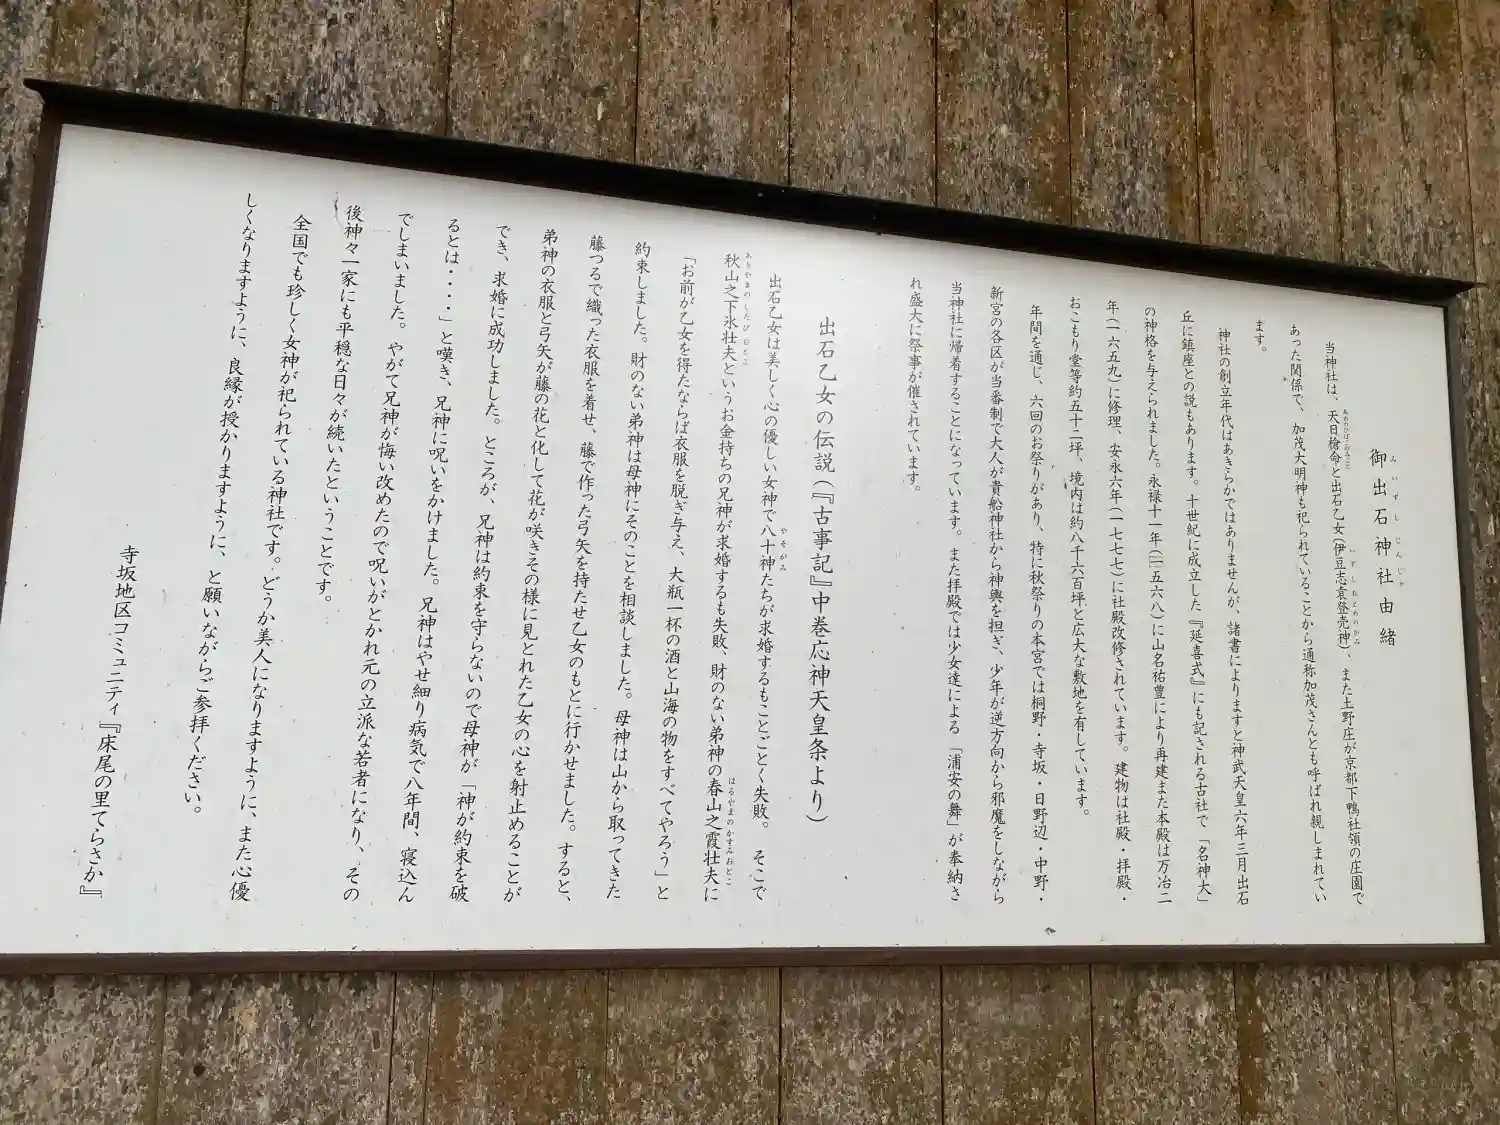 御出石神社由緒
当神社は、天日槍命と出石乙女(伊豆志袁登売神)、また土野庄が京都下鴨社領の庄園で
あった関係で、加茂大明神も祀られていることから通称加茂さんとも呼ばれ親しまれてい
ます。
神社の創立年代はあきらかではありませんが、諸書によりますと神武天皇六年三月出石
丘に鎮座との説もあります。十世紀に成立した『延喜式』にも記される古社で「名神大」
の神格を与えられました。永禄十一年(一五六八)に山名祐豊により再建また本殿は万治二
年(一六五九)に修理、安永六年(一七七七)に社殿改修されています。建物は社殿・拝殿・
おこもり堂等約五十二坪、境内は約八千六百坪と広大な敷地を有しています。
年間を通じ、六回のお祭りがあり、特に秋祭りの本宮では桐野・寺坂・日野辺・中野・
新宮の各区が当番制で大人が貴船神社から神輿を担ぎ、少年が逆方向から邪魔をしながら
当神社に帰着することになっています。また拝殿では少女達による「浦安の舞」が奉納さ
れ盛大に祭事が催されています。
出石乙女の伝説(『古事記』中巻応神天皇条より)
出石乙女は美しく心の優しい女神で八十神たちが求婚するもことごとく失敗。そこで
秋山之下氷壮夫というお金持ちの兄神が求婚するも失敗、財のない弟神の春山之霞壮夫に
「お前が乙女を得たならば衣服を脱ぎ与え、大瓶一杯の酒と山海の物をすべてやろう」と
約束しました。財のない弟神は母神にそのことを相談しました。母神は山から取ってきた
藤つるで織った衣服を着せ、藤で作った弓矢を持たせ乙女のもとに行かせました。すると、
弟神の衣服と弓矢が藤の花と化して花が咲きその様に見とれた乙女の心を射止めることが
でき、求婚に成功しました。ところが、兄神は約束を守らないので母神が「神が約束を破
るとは・・・・」と嘆き、兄神に呪いをかけました。兄神はやせ細り病気で八年間、寝込ん
でしまいました。やがて兄神が悔い改めたので呪いがとかれ元の立派な若者になり、その
後神々一家にも平穏な日々が続いたということです。
全国でも珍しく女神が祀られている神社です。どうか美人になりますように、また心優
しくなりますように、良縁が授かりますように、と願いながらご参拝ください。
寺坂地区コミュニティ『床尾の里てらさか』